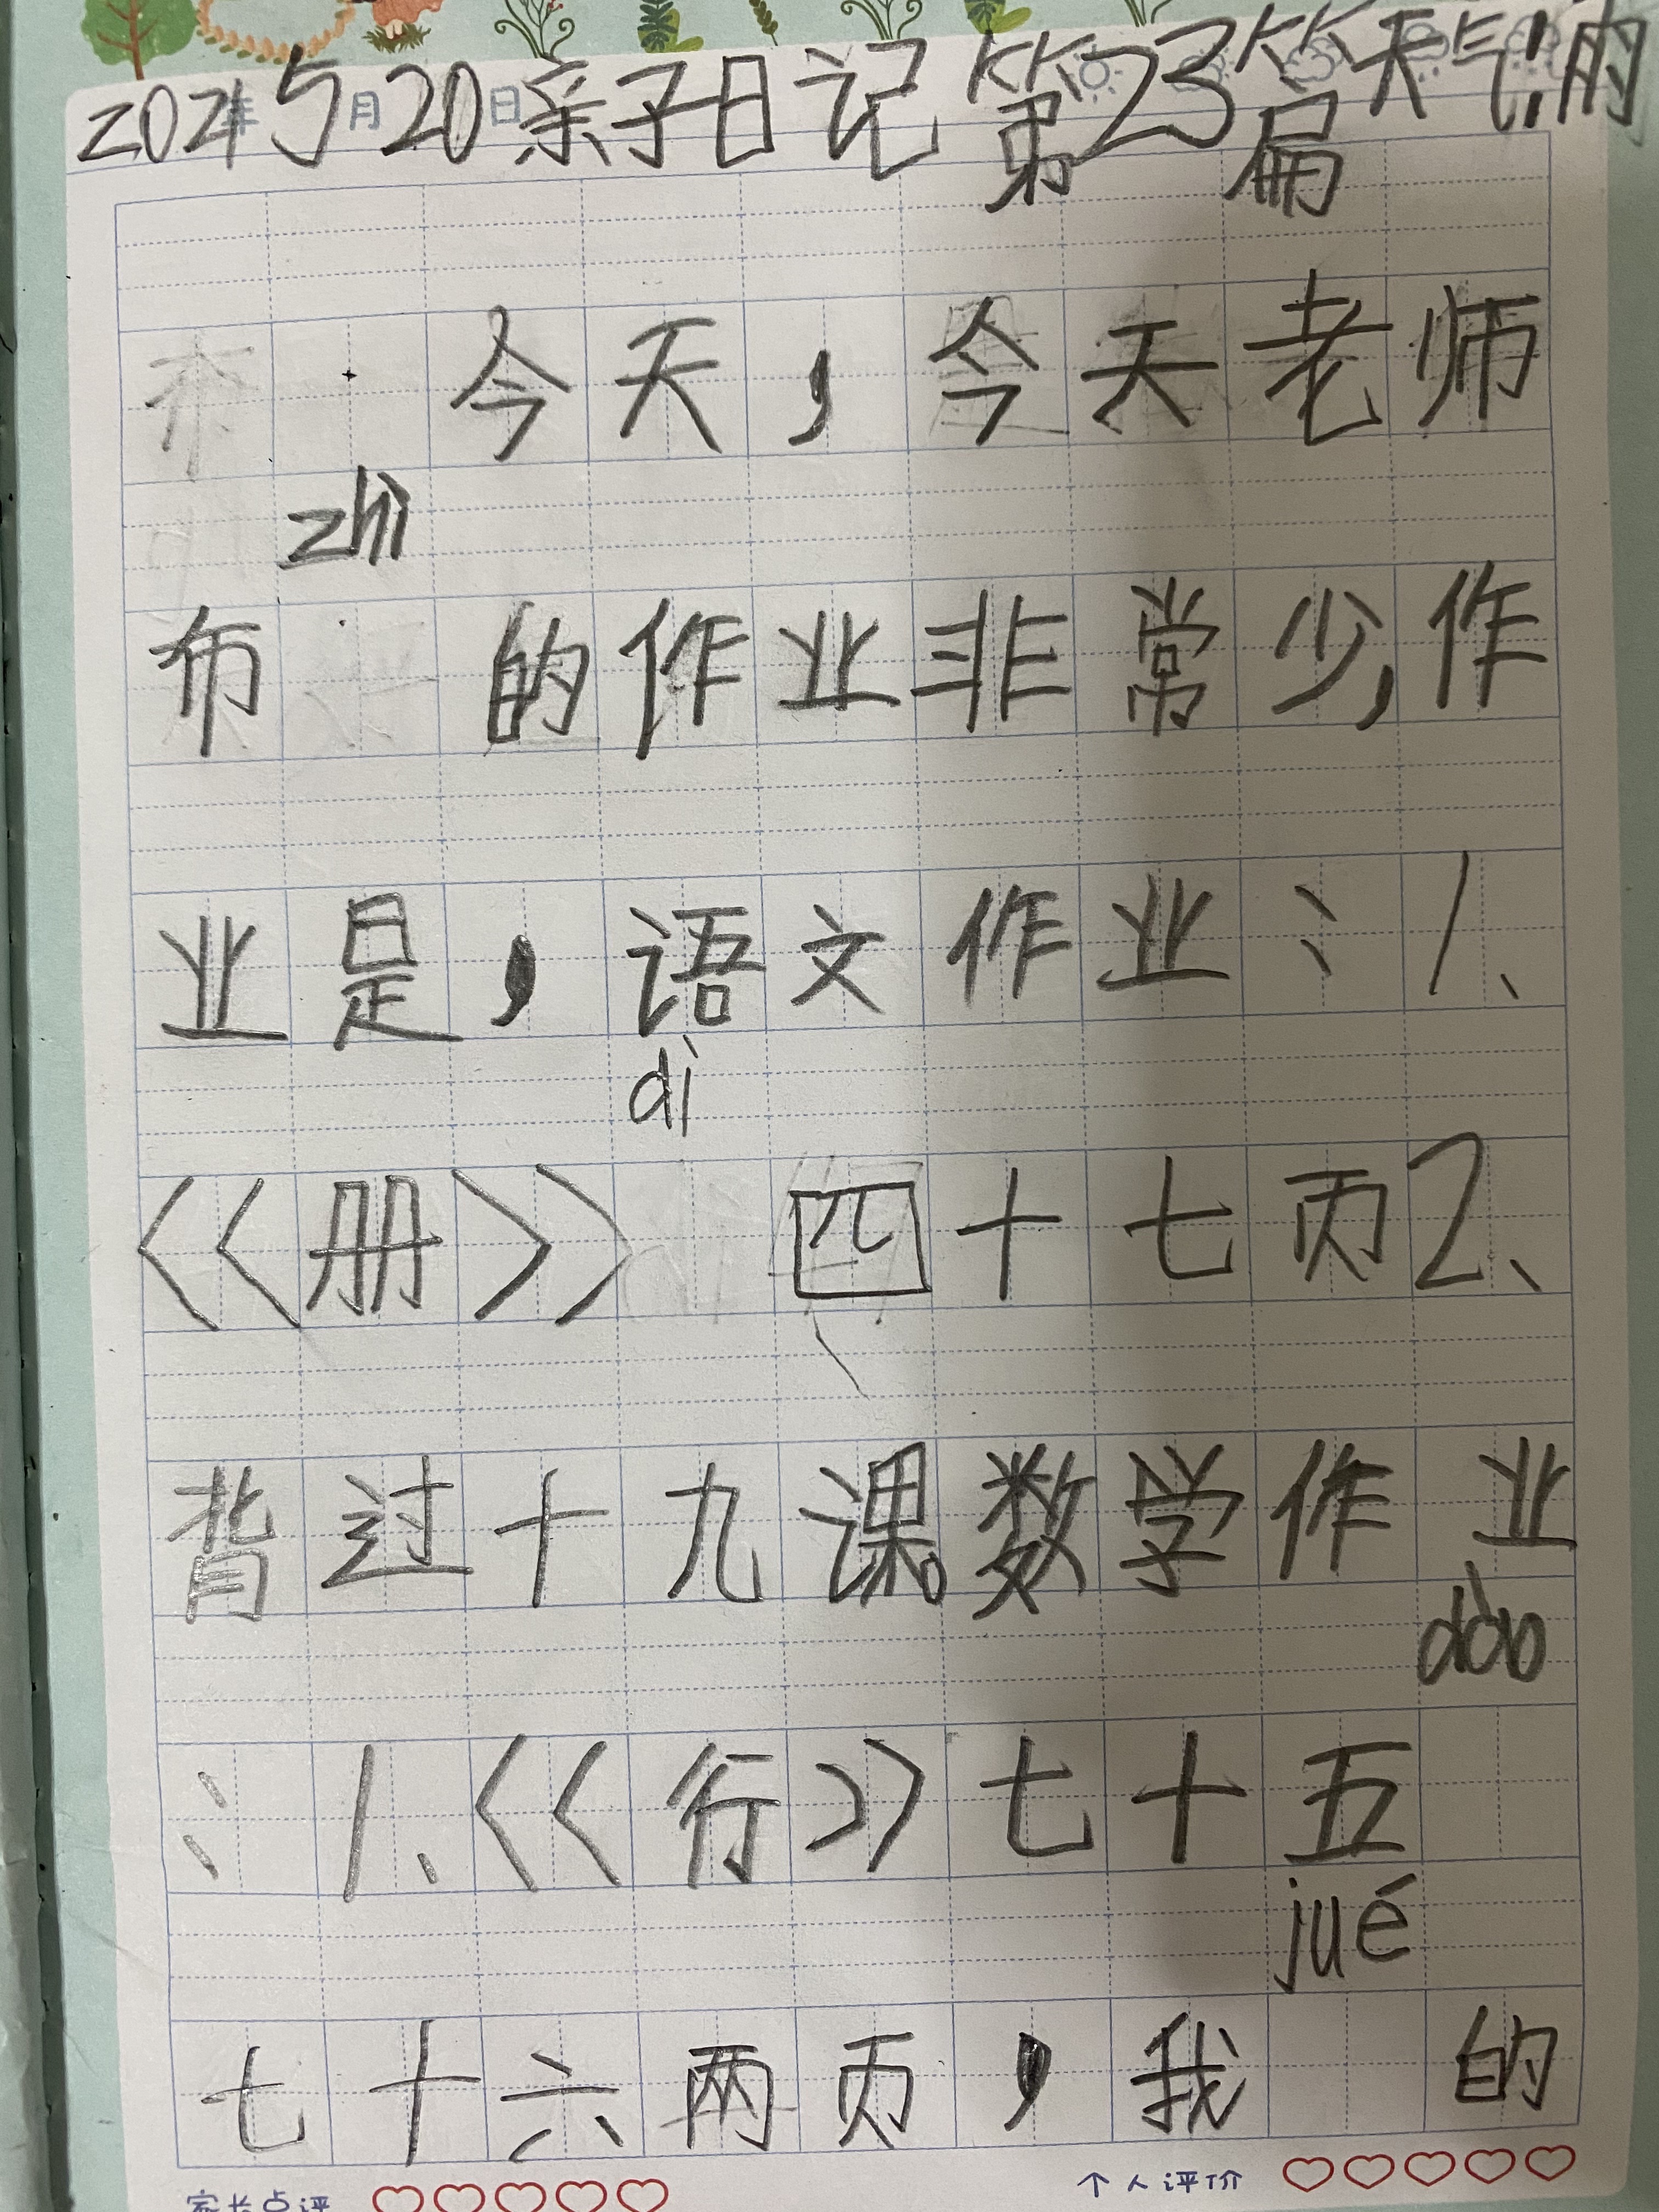 2021年5月20日亲子日记 第23篇天气:雨
今天,今天老师
zhì
布 的作业非常少,作
业是,语文作业:1、
dì
《册》 四十七页2、
背过十九课。数学作业
dào
:1、《行》七十五
jué
七十六两页,我 的
家长点评 个人评价